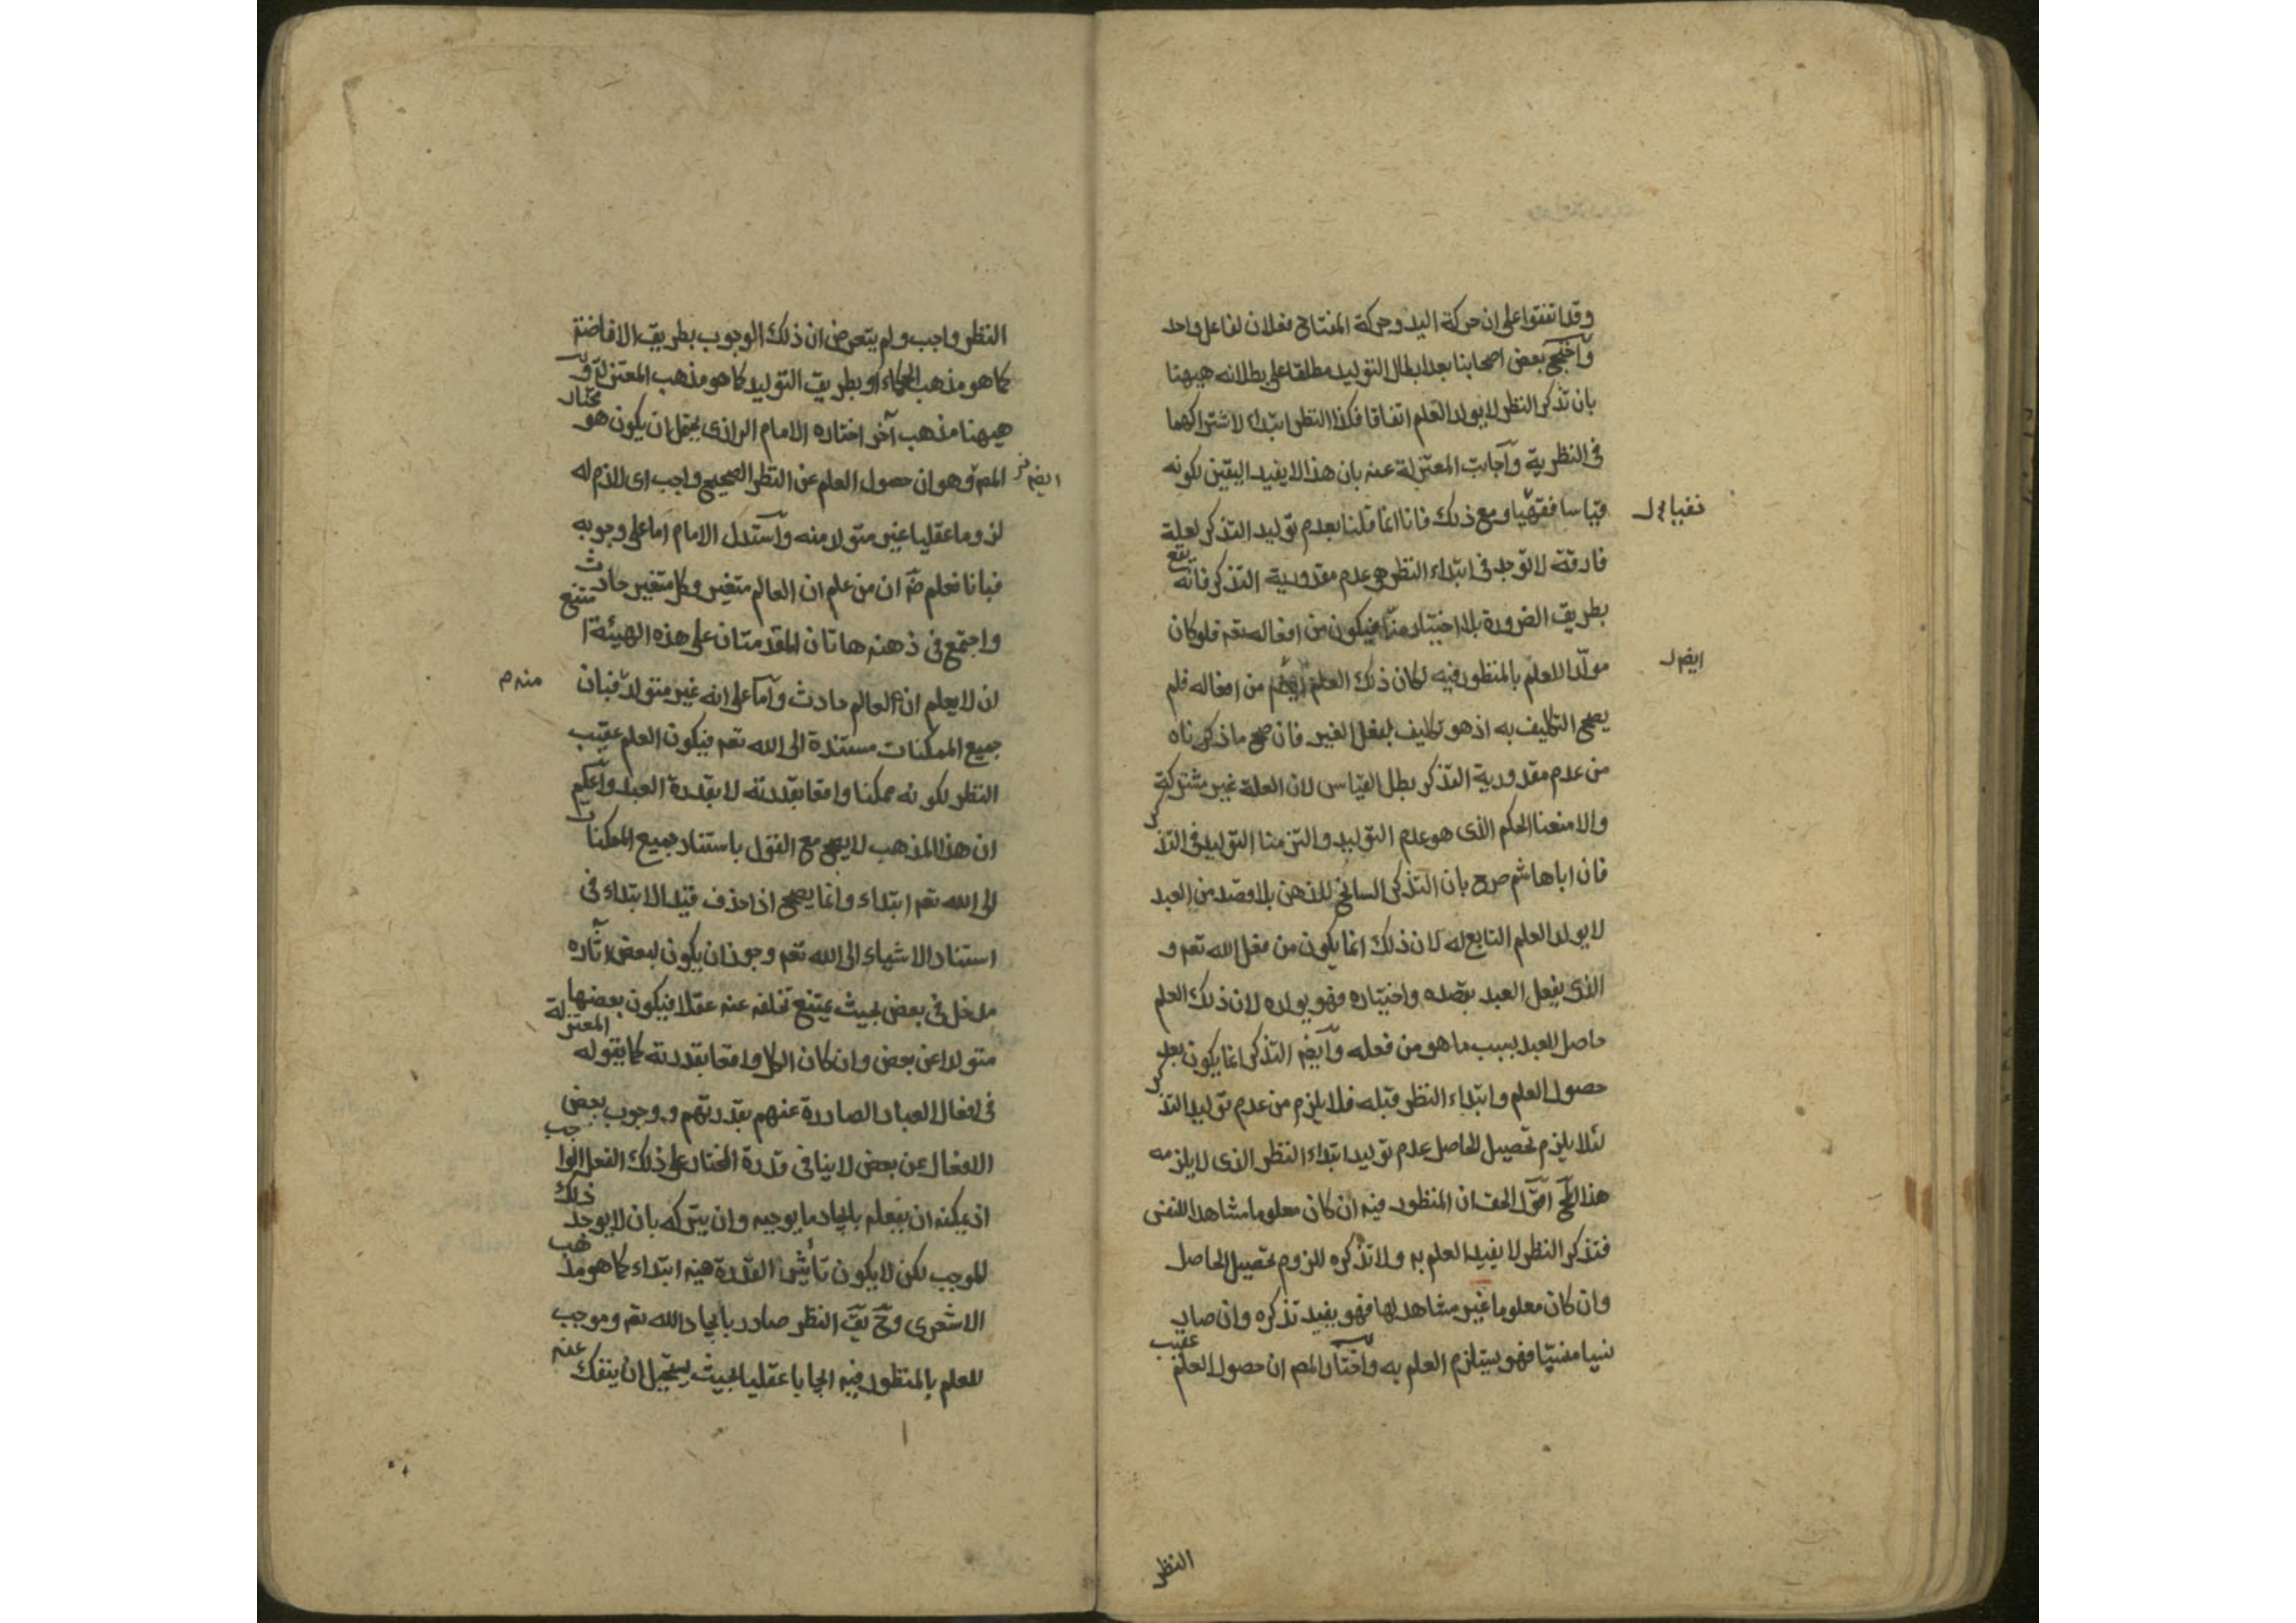 وقد اتفقوا على ان حركة اليد وحركة المفتاح فعلان لفاعل واحد
واحتج بعض اصحابنا بعد ابطال التوليد مطلقا على بطلانه هيهنا
بان تذكر النظر لا يولد العلم اتفاقا فكذا النظر ابتداء لاشتراكهما
فى النظرية واجابت المعتزلة عنه بان هذا لا يفيد اليقين لكونه
قياسا فقهيا ومع ذلك فانا انما قلنا بعدم توليد التذكر لعلة
فارقة لا توجد فى ابتداء النظر هى عدم مقدورية التذكر فانه يقع
بطريق الضرورة بلا اختيار منا فيكون من افعاله تعم فلو كان
مولدا للعلم بالمنظور فيه لكان ذلك العلم ايضم من افعاله فلم
يصح التكليف به اذ هو تكليف بفعل الغير فان صح ما ذكرناه
من عدم مقدورية التذكر بطل القياس لان العلة غير مشتركة
والا منعنا الحكم الذى هو عدم التوليد والتزمنا التوليد فى التذكر
فان اباهاشم صرح بان التذكر السانح للذهن بلا قصد من العبد
لا يولد العلم التابع له لان ذلك انما يكون من فعل الله تعم و
الذى يفعل العبد بقصده واختياره فهو يولده لان ذلك العلم
حاصل للعبد بسبب ما هو من فعله وايضم التذكر انما يكون بعد
حصول العلم وابتداء النظر قبله فلا يلزم من عدم توليد التذكر
لئلا يلزم تحصيل الحاصل عدم توليد ابتداء النظر الذى لا يلزمه
هذا المح اقول الحق ان المنظور فيه ان كان معلوما مشاهدا للنفس
فتذكر النظر لا يفيد العلم به ولا تذكره للزوم تحصيل الحاصل
وان كان معلوما غير مشاهد لها فهو يفيد تذكره وان صار
نسيا منسيا فهو يستلزم العلم به واختار المص ان حصول العلم عقيب
النظر
ايضم ل
النظر واجب ولم يتعرض ان ذلك الوجوب بطريق الافاضة
كما هو مذهب الحكماء او بطريق التوليد كما هو مذهب المعتزلة و
هيهنا مذهب آخر اختاره الامام الرازى يحتمل ان يكون هو مختار
المص وهو ان حصول العلم عن النظر الصحيح واجب اى لازم له
لزوما عقليا غير متولد منه واستدل الامام اما على وجوبه
فبانا نعلم ضم ان من علم ان العالم متغير وكل متغير حادث
واجتمع فى ذهنه هاتان المقدمتان على هذه الهيئة امتنع
ان لا يعلم ان العالم حادث واما على انه غير متولد فبان
جميع الممكنات مستندة الى الله تعم فيكون العلم عقيب
النظر لكونه ممكنا واقعا بقدرته لا بقدرة العبد واعلم
ان هذا المذهب لا يصح مع القول باستناد جميع الممكنات
الى الله تعم ابتداء وانما يصح اذا حذف قيد الابتداء فى
استناد الاشياء الى الله تعم وجوز ان يكون لبعض آثاره
مدخل فى بعض بحيث يمتنع تخلفه عنه عقلا فيكون بعضها
متولدا عن بعض وان كان الكل واقعا بقدرته كما يقوله المعتزلة
فى افعال العباد الصادرة عنهم بقدرتهم ووجوب بعض
الافعال عن بعض لا ينافى قدرة المختار على ذلك الفعل الواجب
اذ يمكنه ان يفعله بايجاد ما يوجبه وان يتركه بان لا يوجد ذلك
الموجب لكن لا يكون تأثير القدرة فيه ابتداء كما هو مذهب
الاشعرى وح يق النظر صادر بايجاد الله تعم وموجب
للعلم بالمنظور فيه ايجابا عقليا بحيث يستحيل ان ينفك عنه